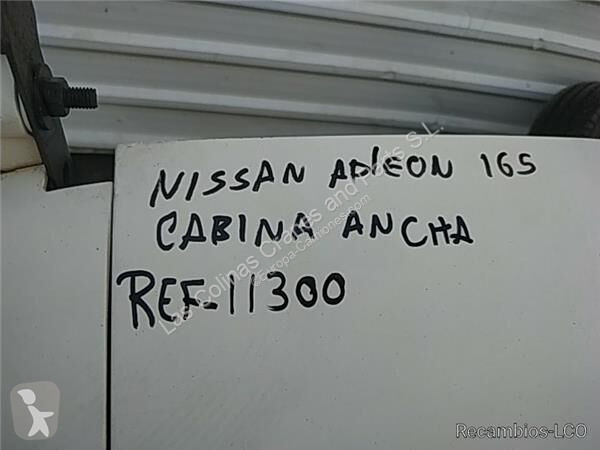 NISSAN ATLEON 165
CABINA ANCHA
REF-11300
Las Colinas Cranes and Parts S.L.
©Europa-Camiones.com
Recambios-LCO